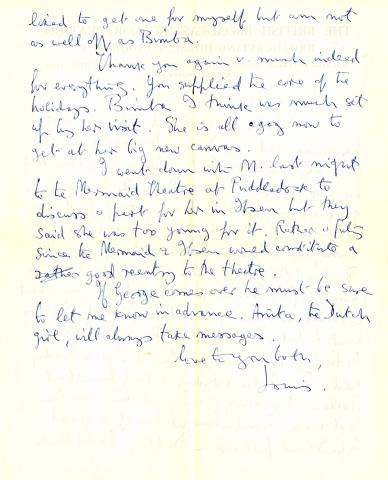 liked to get one for myself but am not
as well off as Bimba.
Thank you again v. much indeed
for everything. You supplied the core of the
holidays. Bimba I think was much set
up by her visit. She is all agog now to
get at her big new canvas.
I went down with M. last night
to the Mermaid Theatre at Puddledock to
discuss a part for her in Ibsen but they
said she was too young for it. Rather a pity
since the Mermaid & Ibsen would constitute a
good reentry to the theatre.
If George comes over he must be sure
to let me know in advance. Anita, the Dutch
girl, will always take messages.
Love to you both,
Louis.